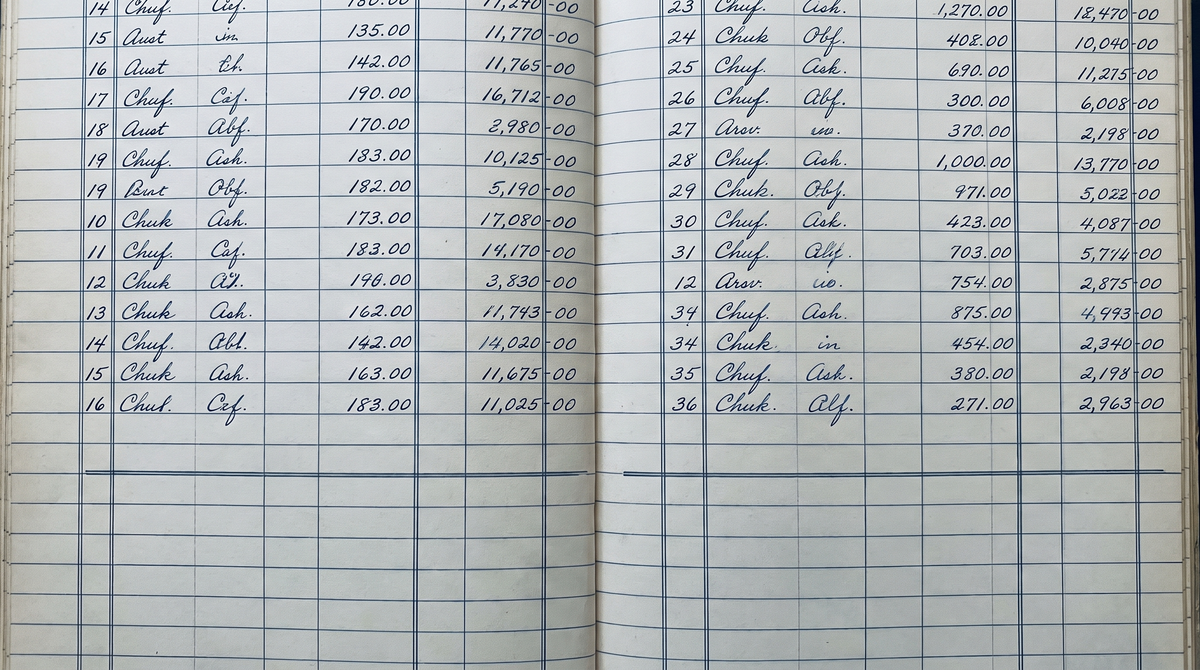 14 Chuf. 11,240-00
15 Aust in 135.00 11,770-00
16 Aust 142.00 11,765-00
17 Chuf. Caf. 190.00 16,712-00
18 Aust Abf. 170.00 2,980-00
19 Chuf. Ash. 183.00 10,125-00
19 Obf. 182.00 5,190-00
10 Chuk Ash. 173.00 17,080-00
11 Chuf. Caf. 183.00 14,170-00
12 Chuk 3,830-00
13 Chuk Ash. 162.00 11,743-00
14 Chuf. Obt. 142.00 14,020-00
15 Chuk Ash. 163.00 11,675-00
16 183.00 11,025-00
23 Chuf. Ash. 1,270.00 18,470-00
24 Chuk Obf. 408.00 10,040-00
25 Chuf. Ask. 690.00 11,275-00
26 Chuf. Abf. 300.00 6,008-00
27 Arsv. 370.00 2,198-00
28 Chuf. Ash. 1,000.00 13,770-00
29 Chuk. Obf. 971.00 5,022-00
30 Chuf. Ask. 423.00 4,087-00
31 Chuf. 703.00
12 Arsv. 754.00 2,875-00
34 Chuf. Ash. 875.00 4,993-00
34 Chuk. in 454.00 2,340-00
35 Chuf. Ask. 380.00 2,198-00
36 Chuk. Alf. 271.00 2,963-00